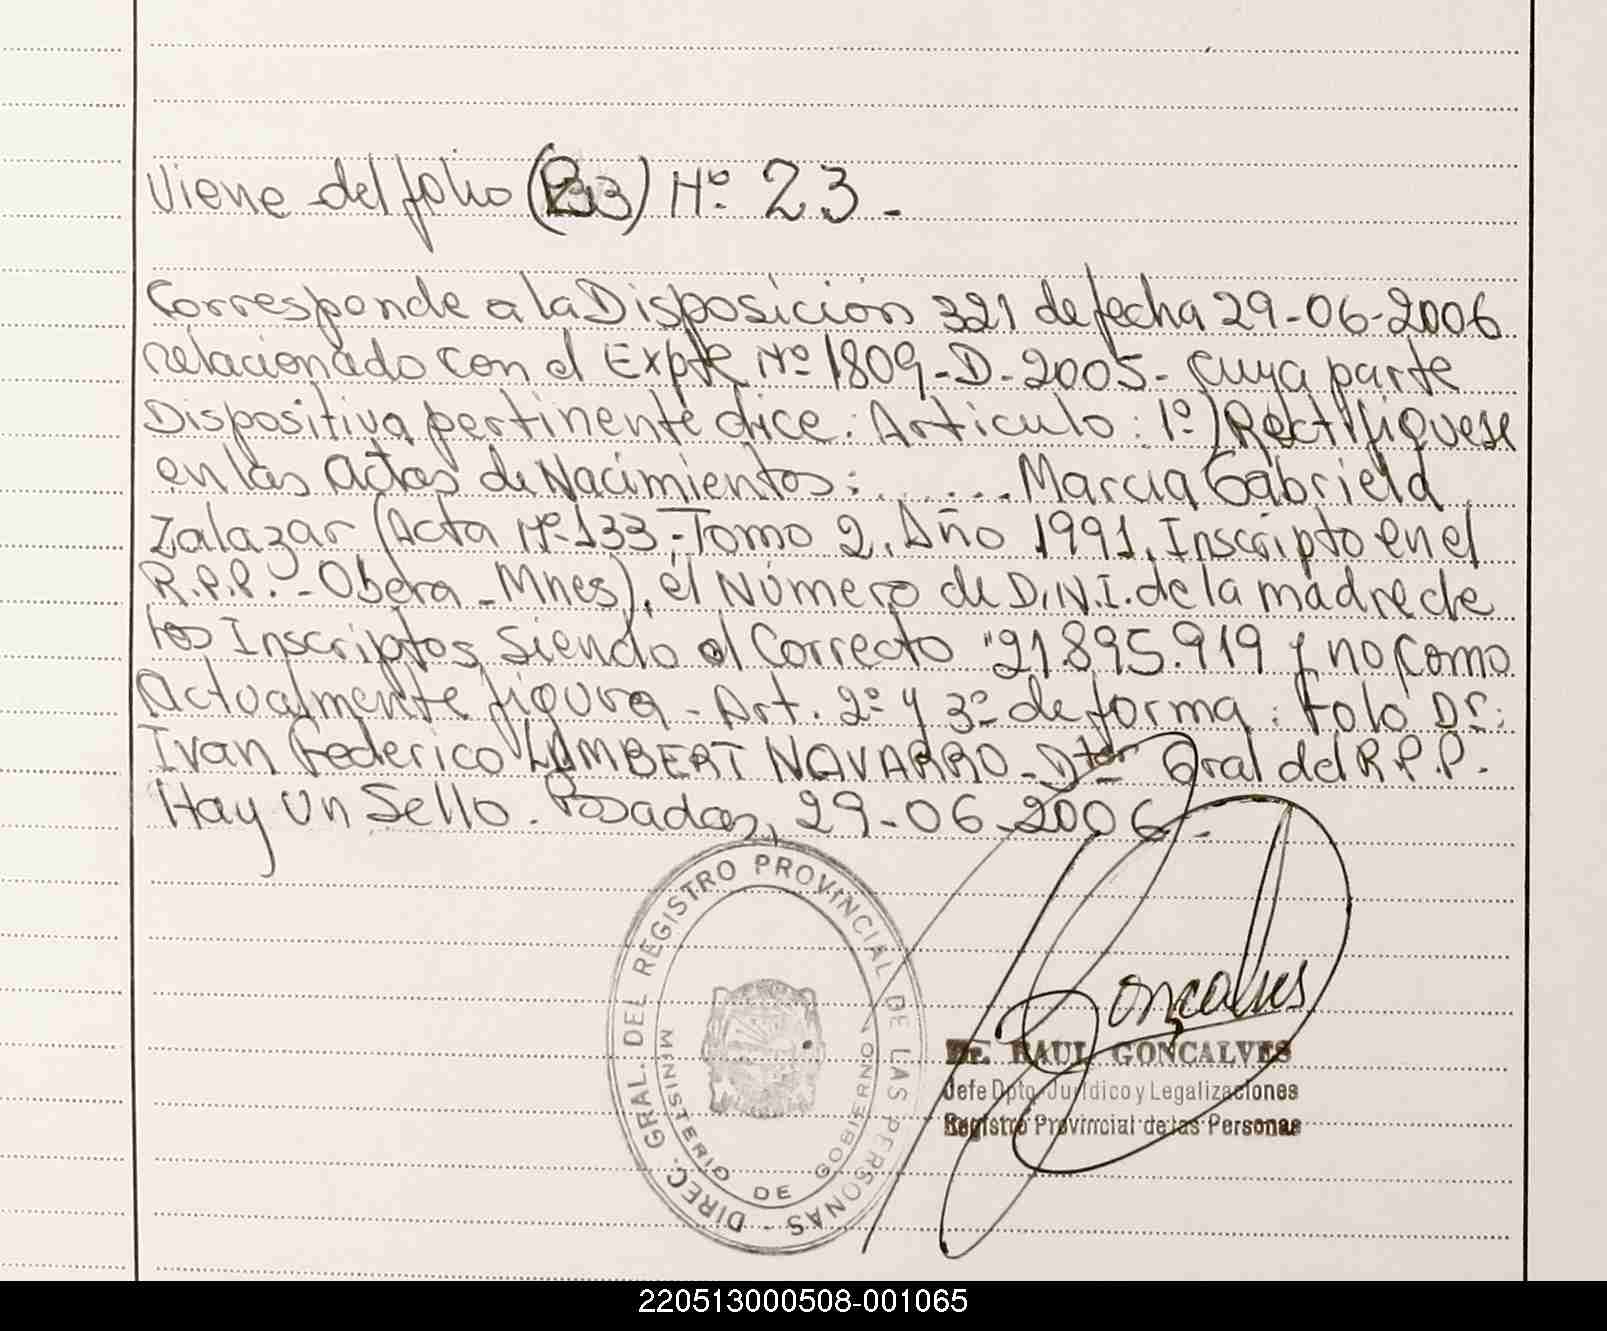 Viene del folio (133) Nº 23.-
Corresponde a la Disposición 321 de fecha 29-06-2006
relacionado con el Expte Nº 1809-D-2005- cuya parte
Dispositiva pertinente dice: Artículo: 1º) Rectifíquese
en las Actas de Nacimientos: ....... Marcia Gabriela
Zalazar (Acta Nº 133,-Tomo 2. Año 1991. Inscripto en el
R.P.P.-Obera-Mnes), el Número de D.N.I. de la madre de
los Inscriptos, siendo el Correcto "21.895.919 y no como
Actualmente figura - Art. 2º y 3º de forma: Fdo Dr:
Ivan Federico LAMBERT NAVARRO-Dtor Gral del R.P.P.
Hay un Sello. Posadas, 29-06-2006.-
DIREC. GRAL. DEL REGISTRO PROVINCIAL DE LAS PERSONAS -
MINISTERIO DE GOBIERNO
Goncalves
Dr. RAUL GONCALVES
Jefe Dpto. Jurídico y Legalizaciones
Registro Provincial de las Personas
220513000508-001065